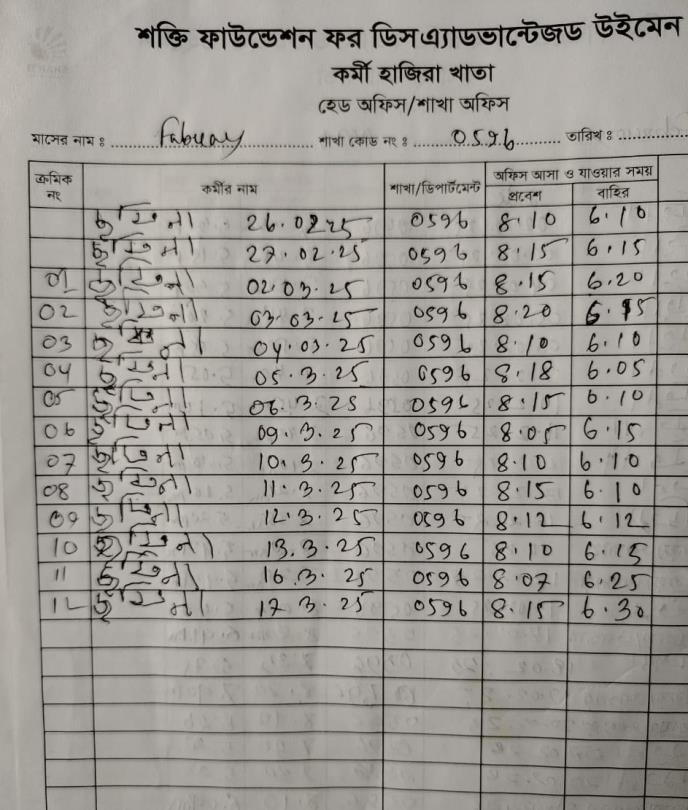 শক্তি ফাউন্ডেশন ফর ডিসএ্যাডভান্টেজড উইমেন
কর্মী হাজিরা খাতা
হেড অফিস/শাখা অফিস
মাসের নাম ঃ Fabuay শাখা কোড নং ঃ 0596 তারিখ ঃ
ক্রমিক নং কর্মীর নাম শাখা/ডিপার্টমেন্ট অফিস আসা ও যাওয়ার সময়
প্রবেশ বাহির
26.02.25 0596 8.10 6.10
27.02.25 0596 8.15 6.15
01 02.03.25 0596 8.15 6.20
02 03.03.25 0596 8.20 6.15
03 04.03.25 0596 8.10 6.10
04 05.3.25 0596 8.18 6.05
05 06.3.25 0596 8.15 6.10
06 09.3.25 0596 8.05 6.15
07 10.3.25 0596 8.10 6.10
08 11.3.25 0596 8.15 6.10
09 12.3.25 0596 8.12 6.12
10 13.3.25 0596 8.10 6.15
11 16.3.25 0596 8.07 6.25
12 17.3.25 0596 8.15 6.30